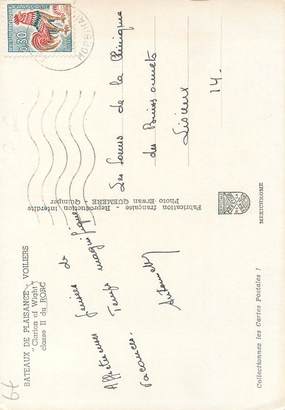 BATEAUX DE PLAISANCE - VOILIERS
"Clarion of Wight"
classe II du RORC
Affectueuses pensées de
vacances. Temps magnifique
Fabrication française - Reproduction Interdite
Photo Erwan QUEMERE - Quimper
0,30
Les Sœurs de la Clinique
des Buissonnets
Lisieux
14.
MEXICHROME
Collectionnez les Cartes Postales !
64